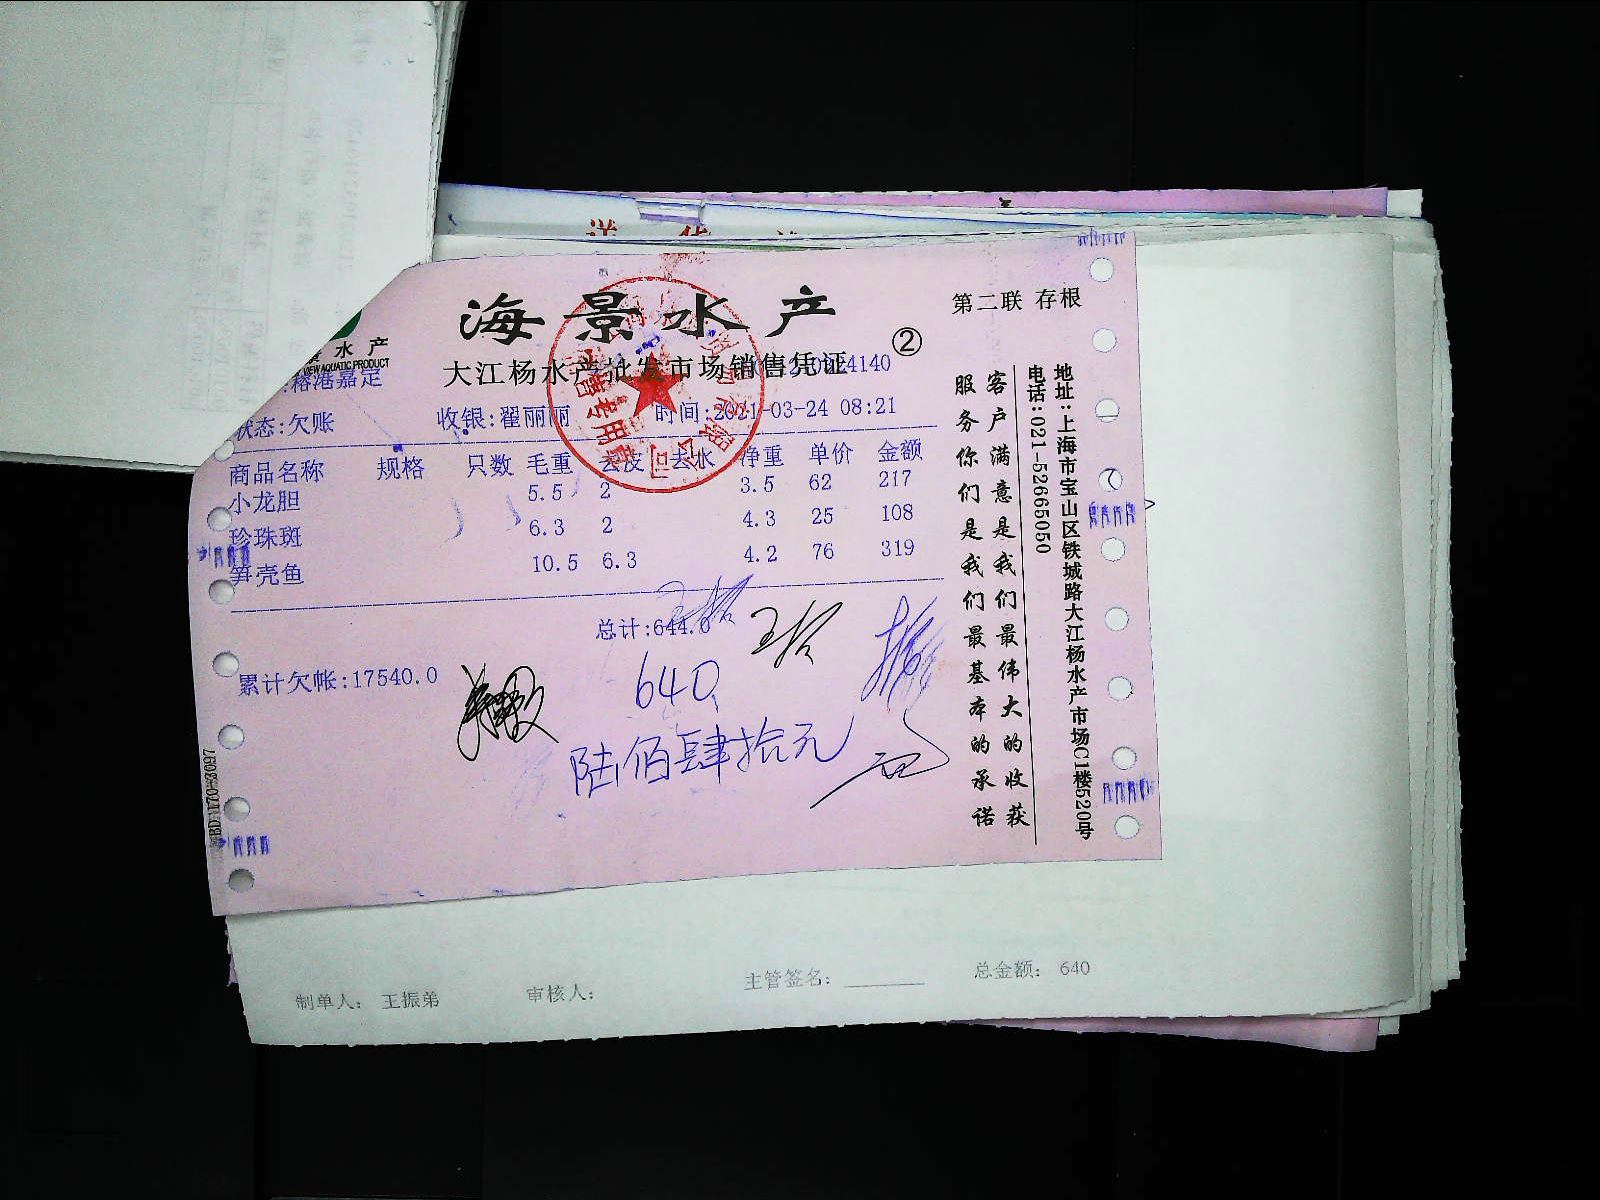 送 货
海景水产
第二联 存根
②
水产
VIEW AQUATIC PRODUCT
大江杨水产批发市场销售凭证
榕港嘉定
状态:欠账 收银:翟丽丽 时间:2021-03-24 08:21
商品名称 规格 只数 毛重 去皮 去水 净重 单价 金额
小龙胆 5.5 2 3.5 62 217
珍珠斑 6.3 2 4.3 25 108
笋壳鱼 10.5 6.3 4.2 76 319
总计:644.0
累计欠帐:17540.0
640
陆佰肆拾元
客户满意是我们最伟大的收获
服务你们是我们最基本的承诺
地址:上海市宝山区铁城路大江杨水产市场C1楼520号
电话:021-52665050
制单人: 王振弟 审核人: 主管签名: 总金额: 640